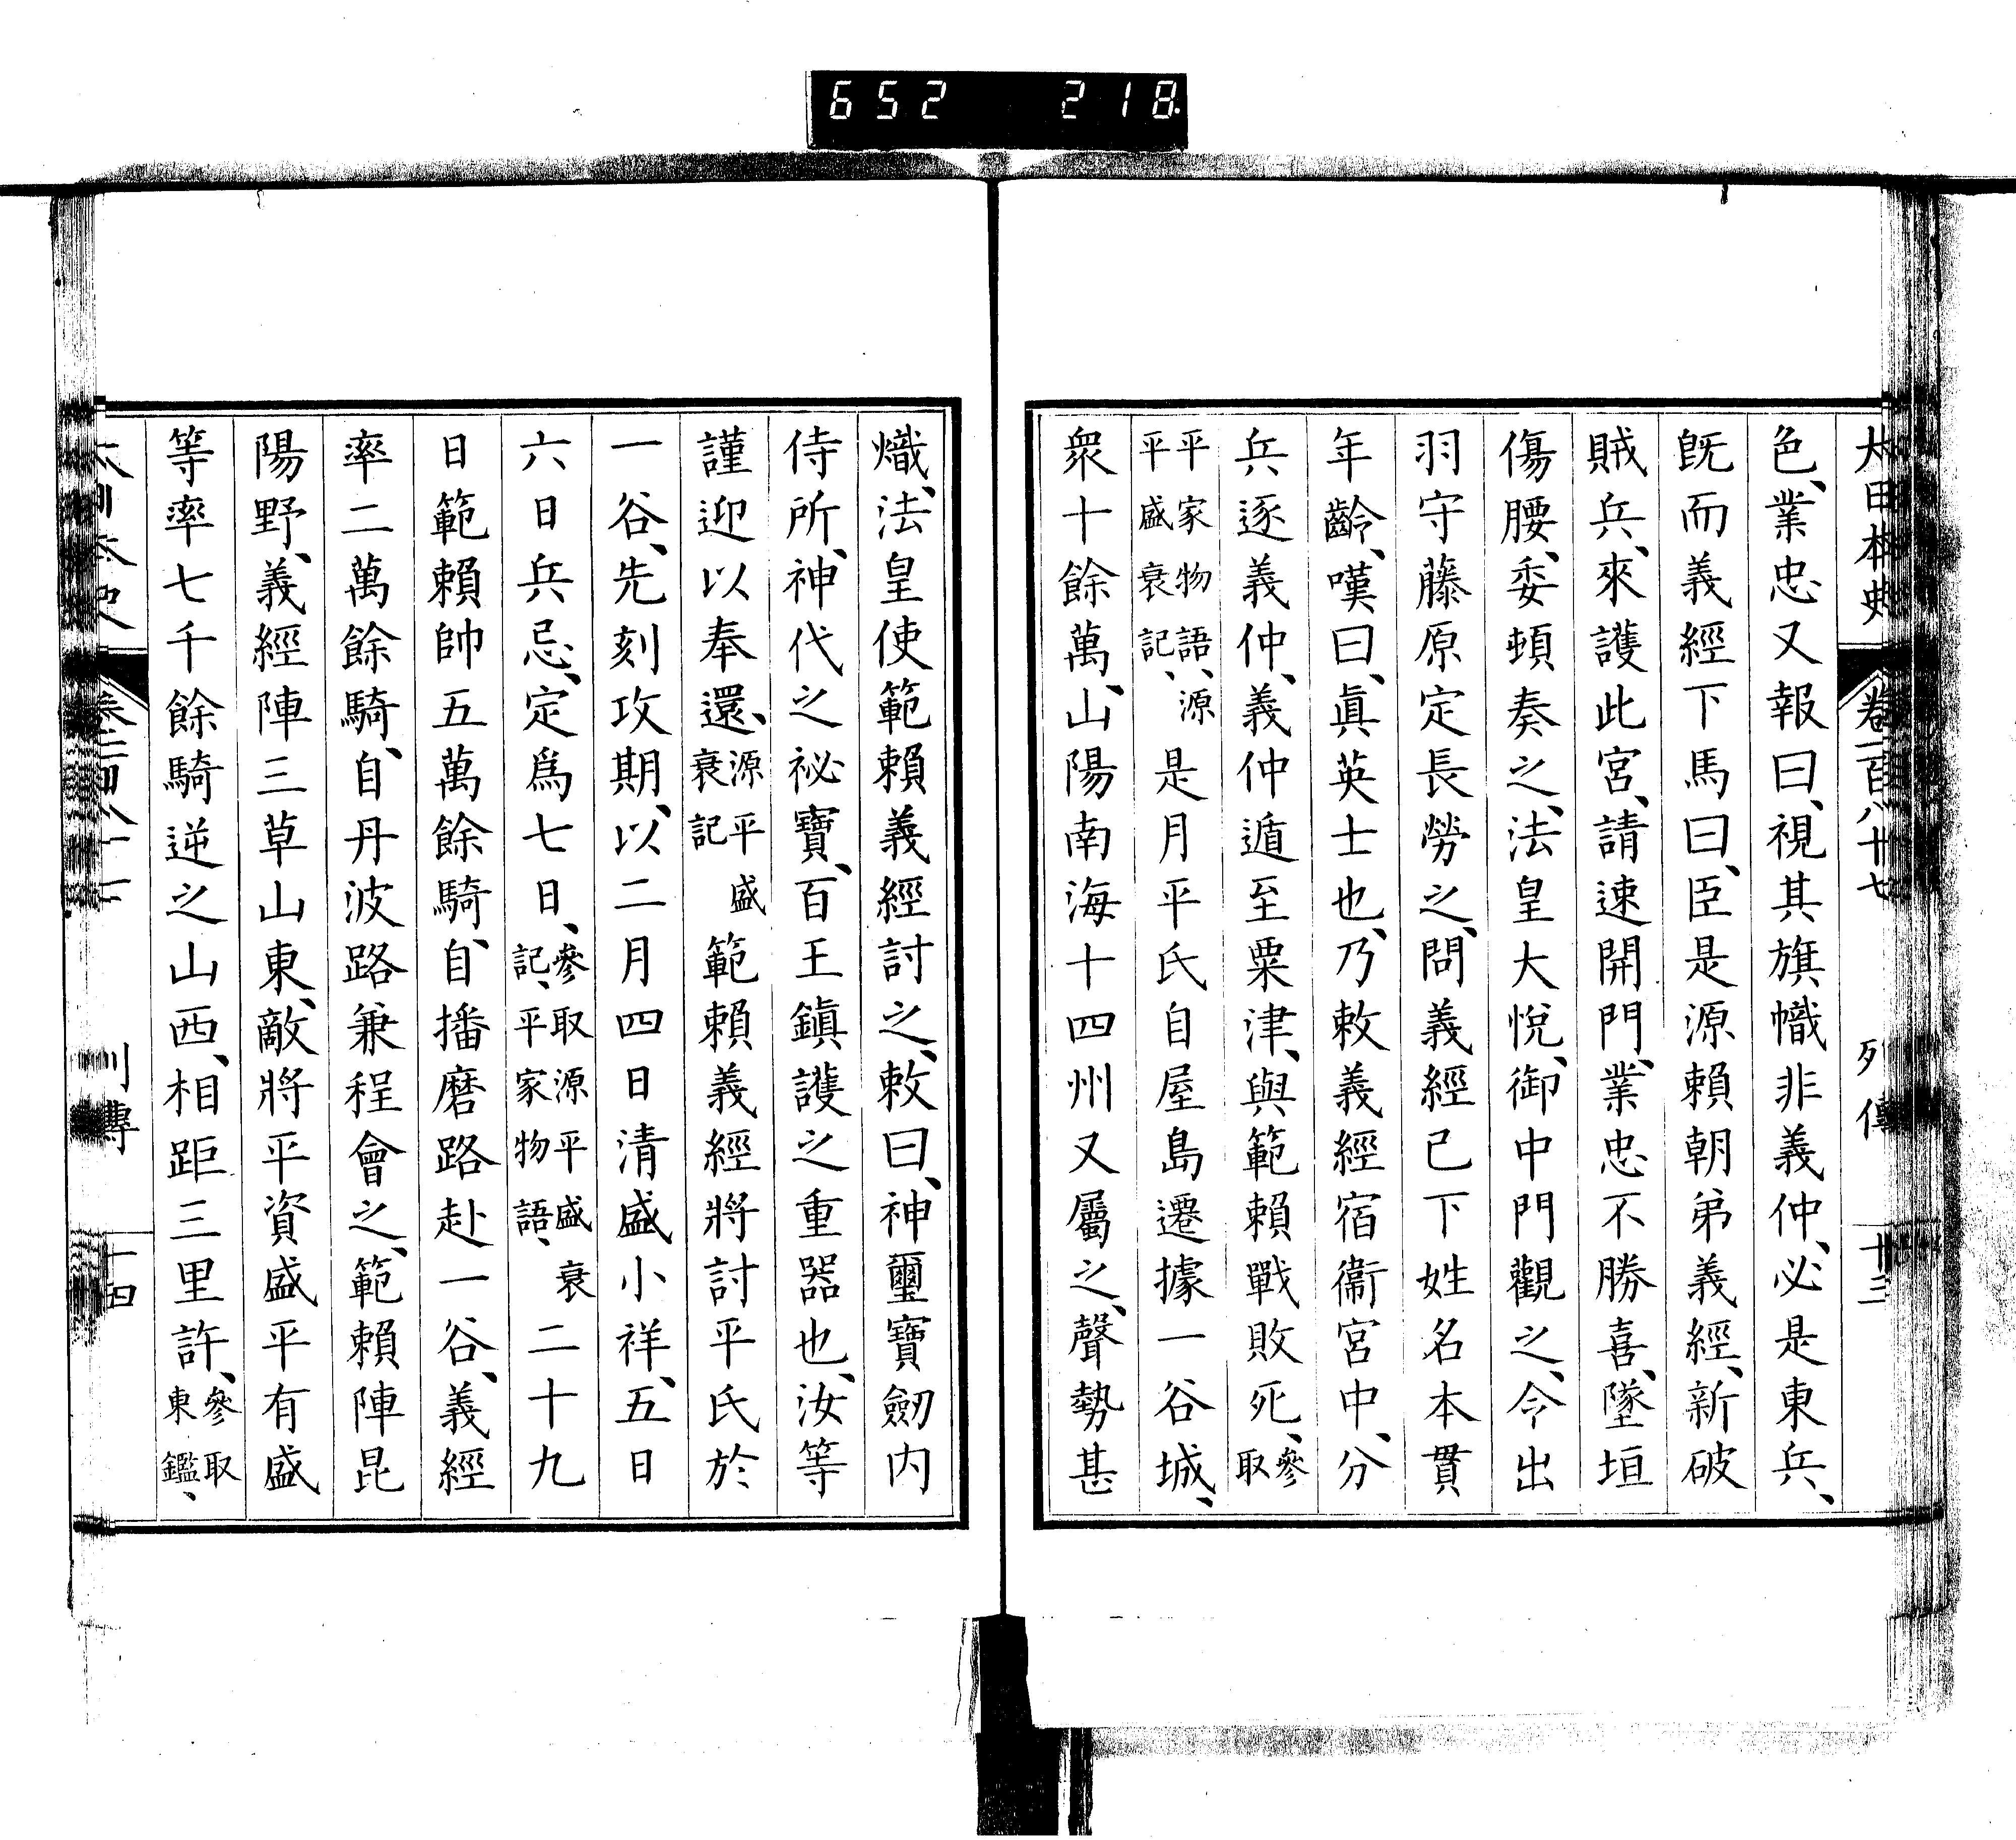 652 218
大日本史 卷一百八十七 列傳 十三
色、業忠又報曰、視其旗幟非義仲、必是東兵、
旣而義經下馬曰、臣是源賴朝弟義經、新破
賊兵、來護此宮、請速開門、業忠不勝喜、墜垣
傷腰、委頓奏之、法皇大悅、御中門觀之、今出
羽守藤原定長勞之、問義經已下姓名本貫
年齡、嘆曰、眞英士也、乃敕義經宿衞宮中、分
兵逐義仲、義仲遁至粟津、與範賴戰敗死、參取
平家物語、源平盛衰記、是月平氏自屋島遷據一谷城、
衆十餘萬、山陽南海十四州又屬之、聲勢甚
熾、法皇使範賴義經討之、敕曰、神璽寶劒内
侍所、神代之祕寶、百王鎭護之重器也、汝等
謹迎以奉還、源平盛衰記範賴義經將討平氏於
一谷、先刻攻期、以二月四日清盛小祥、五日
六日兵忌、定爲七日、參取源平盛衰記、平家物語、二十九
日範賴帥五萬餘騎、自播磨路赴一谷、義經
率二萬餘騎、自丹波路兼程會之、範賴陣昆
陽野、義經陣三草山東、敵將平資盛平有盛
等率七千餘騎逆之山西、相距三里許、參取東鑑、
列傳 十四